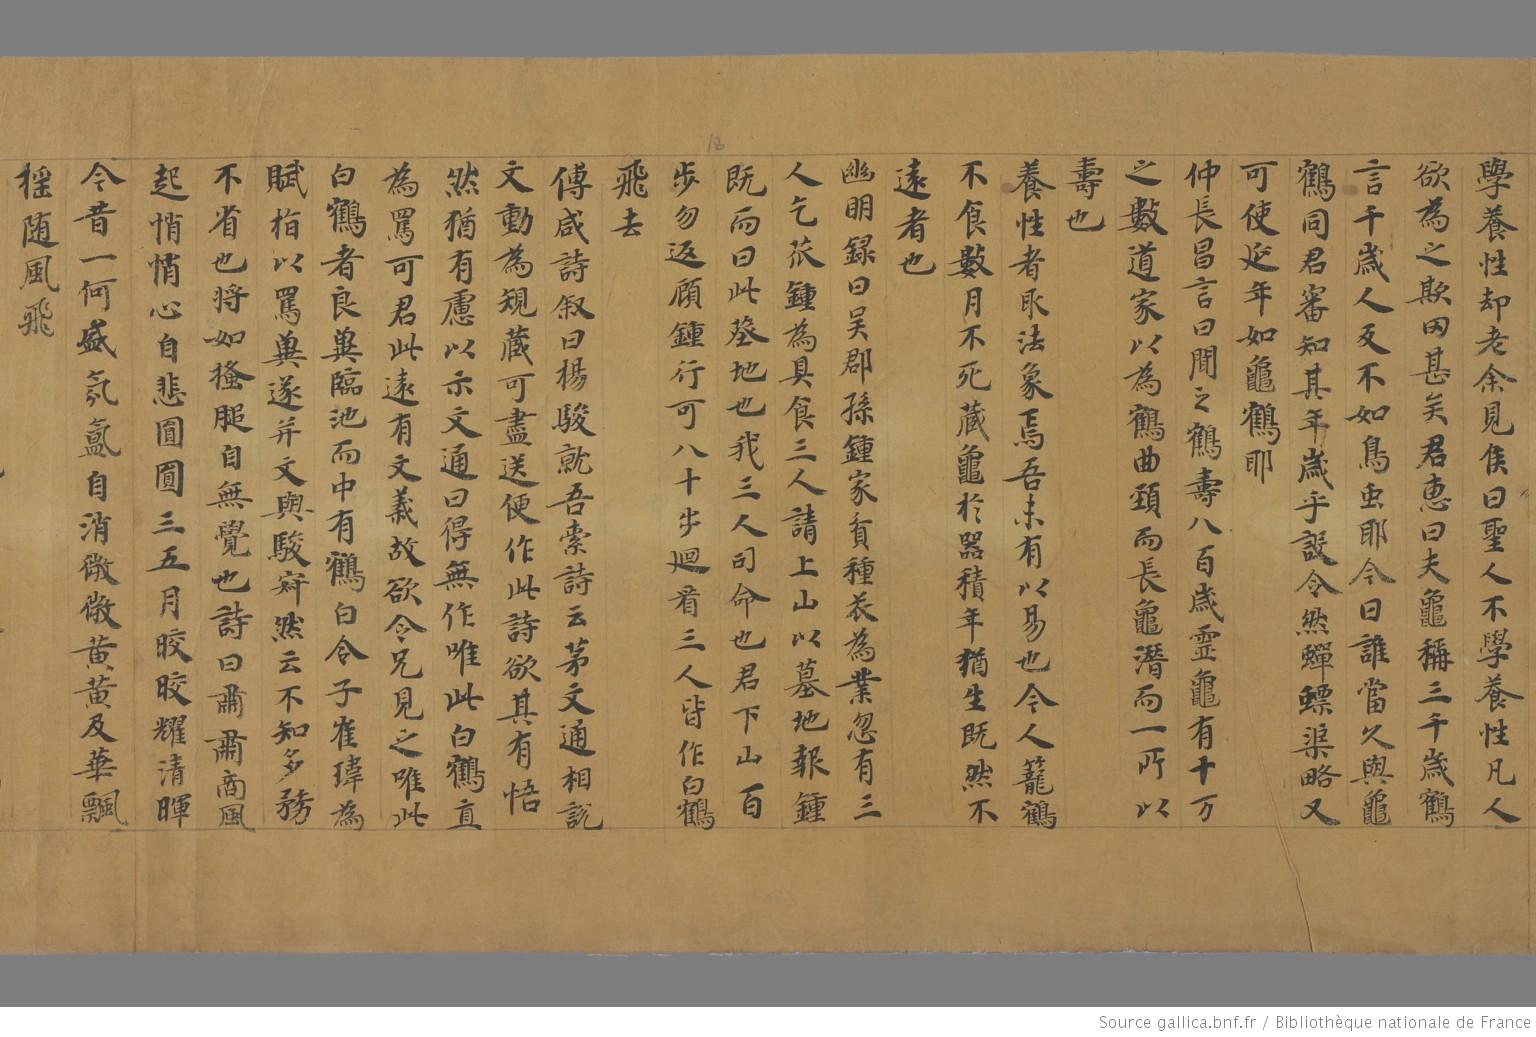 學養性却老余見侯曰聖人不學養性凡人
欲為之欺因甚矣君惠曰夫龜稱三千歲鶴
言千歲人及不如鳥虫耶今曰誰當久與龜
鶴同君審知其年歲乎設令然蟬蟝渠略又
可使延年如龜鶴耶
仲長昌言曰聞之鶴壽八百歲靈龜有十万
之數道家以為鶴曲頸而長龜潛而一所以
壽也
養性者取法象焉吾未有以易也今人籠鶴
不食數月不死藏龜於器積年猶生既然不
遠者也
幽明録曰吴郡孫鍾家貧種衣為業忽有三
人乞苽鍾為具食三人請上山以墓地報鍾
既而曰此墓地也我三人司命也君下山百
步勿返顧鍾行可八十步迴看三人皆作白鶴
飛去
傅咸詩叙曰楊駿就吾索詩云茅文通相説
文動為規藏可盡送便作此詩欲其有悟
然猶有慮以示文通曰得無作唯此白鶴直
為罵可君此遠有文義故欲令兄見之唯此
白鶴者良與臨池而中有鶴白令子崔瑋為
賦指以罵冀遂并文與駿寂然云不知多務
不省也將如搔腿自無覺也詩曰肅肅商風
起悄悄心自悲圓圓三五月皎皎耀清暉
今昔一何盛氛氳自消微微黄黄及華飄
摇随風飛
Source gallica.bnf.fr / Bibliothèque nationale de France